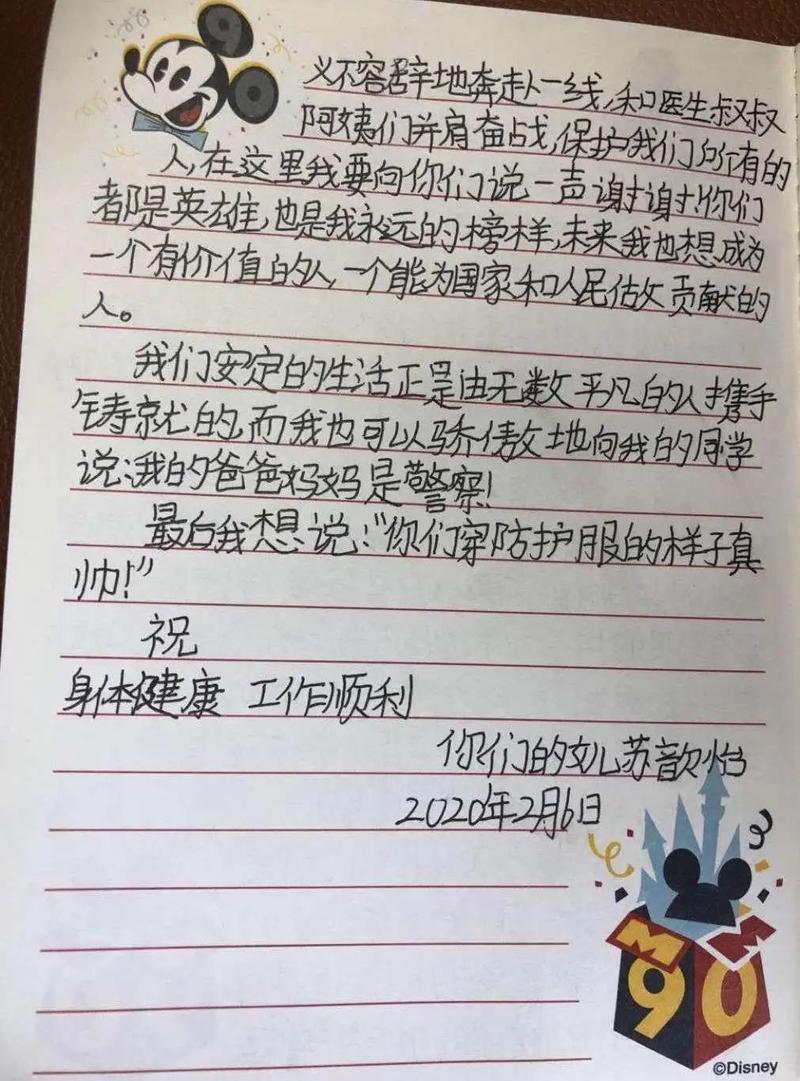 义不容辞地奔赴一线,和医生叔叔
阿姨们并肩奋战,保护我们所有的
人,在这里我要向你们说一声谢谢!你们
都是英雄,也是我永远的榜样,未来我也想成为
一个有价值的人,一个能为国家和人民做贡献的
人。
我们安定的生活正是由无数平凡的人携手
铸就的,而我也可以骄傲地向我的同学
说:我的爸爸妈妈是警察!
最后我想说:“你们穿防护服的样子真
帅!”
祝
身体健康 工作顺利
你们的女儿苏歆怡
2020年2月6日
M M
90
©Disney